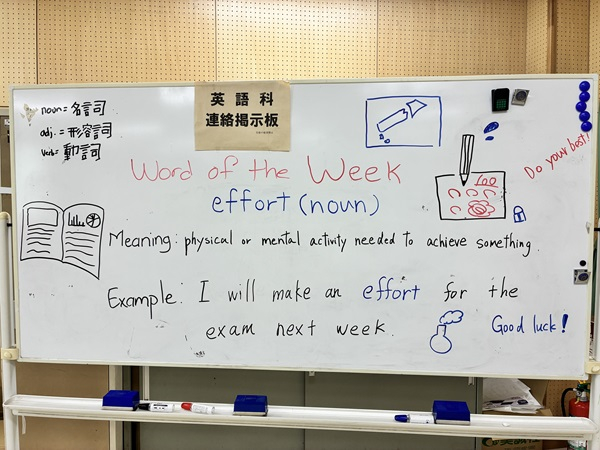 noun = 名詞
adj. = 形容詞
verb = 動詞
英語科
連絡掲示板
Word of the Week
effort (noun)
100
Do your best!
Meaning: physical or mental activity needed to achieve something.
Example: I will make an effort for the
exam next week.
Good luck!